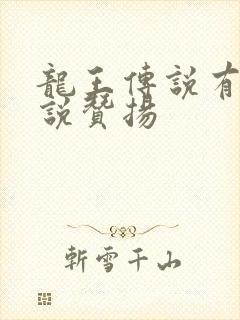 龍王傳說有
說贊揚
斬雪千山